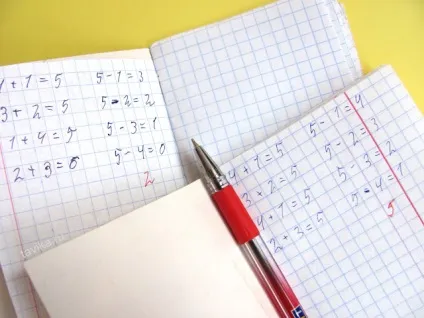 4 + 1 = 5 5 - 1 = 3
3 + 2 = 5 5 - 2 = 2
1 + 4 = 5 5 - 3 = 1
2 + 3 = 6 5 - 4 = 0
2
4 + 1 = 5 5 - 1 = 4
3 + 2 = 5 5 - 2 = 3
4 + 1 = 5 5 - 3 = 2
2 + 3 = 5 5 - 4 = 1
5